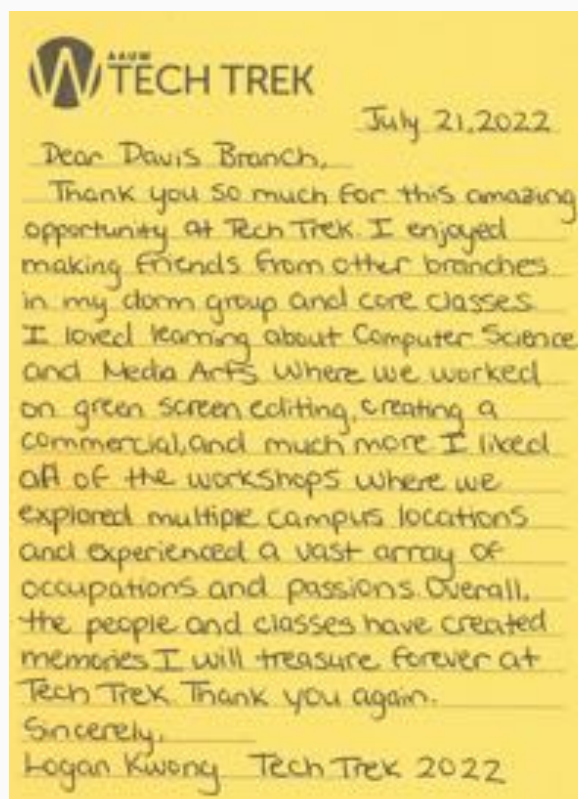 AAUW
TECH TREK
July 21, 2022
Dear Davis Branch,
Thank you so much for this amazing
opportunity at Tech Trek. I enjoyed
making friends from other branches
in my dorm group and core classes.
I loved learning about Computer Science
and Media Arts where we worked
on green screen editing, creating a
commercial, and much more. I liked
all of the workshops where we
explored multiple campus locations
and experienced a vast array of
occupations and passions. Overall,
the people and classes have created
memories I will treasure forever at
Tech Trek. Thank you again.
Sincerely,
Logan Kwong Tech Trek 2022